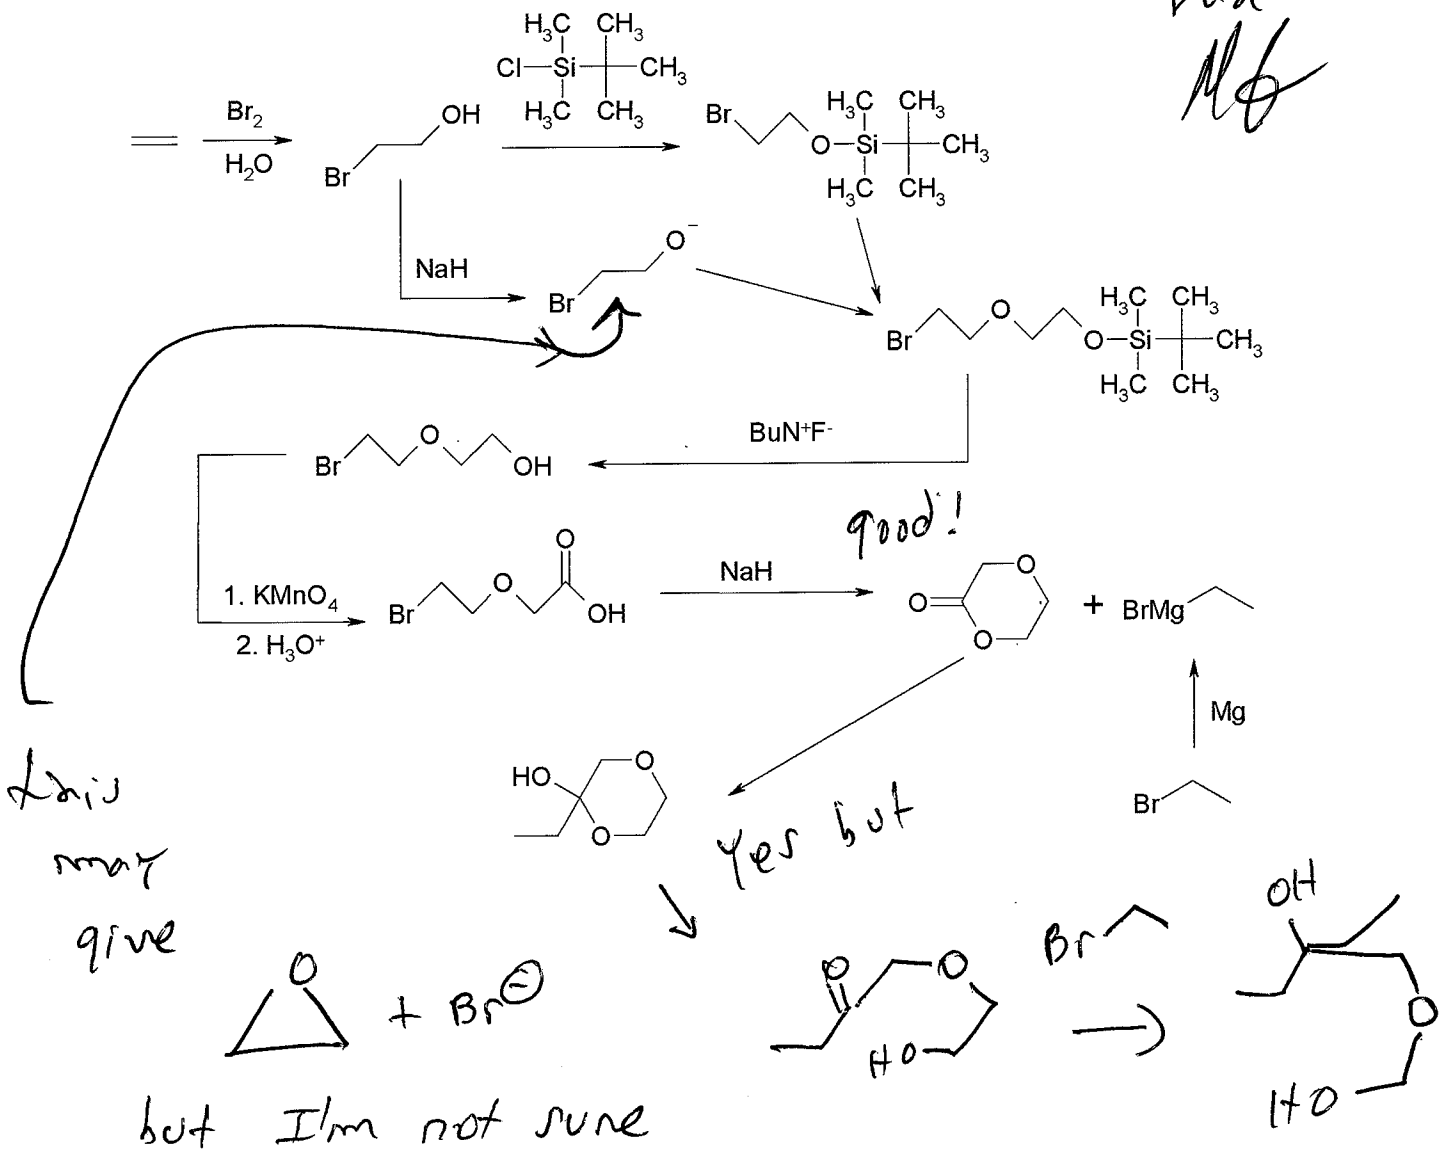 H₃C CH₃
Cl Si CH₃
H₃C CH₃
Br₂
H₂O
OH
Br
Br
H₃C CH₃
O Si CH₃
H₃C CH₃
NaH
O⁻
Br
Br O O
H₃C CH₃
Si CH₃
H₃C CH₃
BuN⁺F⁻
Br O OH
good!
1. KMnO₄
2. H₃O⁺
Br O O OH
NaH
O O O
+
BrMg
Mg
Br
HO O O
Yes but
this
may
give
O
+ Br⊖
but I'm not sure
O O HO
Br
OH
O
HO